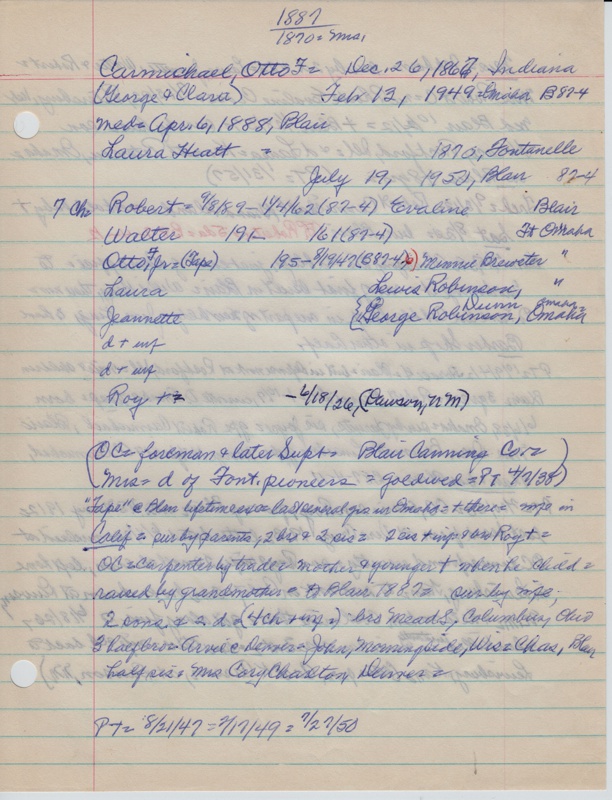 1887
1870 = Mrs.
Carmichael, Otto F = Dec. 26, 1867, Indiana
(George & Clara) Feb. 13, 1949 = Omaha B 87-4
med = Apr. 6, 1888, Blair
Laura Hiatt = 1870, Fontanelle
July 19, 1950, Blair 87-4
7 Ch = Robert = 9/8/89 - 11/4/62 (87-4) Evaline Blair
Walter 191- 1/61 (87-4) Ft Omaha
Otto F, Jr = (Tape) 195 - 8/1947 (B 87-4) Minnie Brewster "
Laura Lewis Robinson, "
Jeannette {George Robinson, Dunn Omaha, Omaha
d + inf
d + inf
Roy + = - 6/18/26, (Dawson, NM)
(OC = foreman & later Supt = Blair Canning Co. =
Mrs = d of Font. pioneers = goldwed = PT 4/7/38)
"Tape" = Blair = last = in Omaha = + there = wife in
Calif = sur by parents, 2 bro & 2 sis = 2 sis + inf & bro Roy + =
OC = Carpenter by trade = mother & younger + when he child =
raised by grandmother = to Blair 1887 = sur by wife,
2 sons, & 2 d = (4 ch + inf =) bro Mead S, Columbus, Ohio
3 halfbro = Arvie = Denver = John, Morningside, Wis = Chas, Blair
halfsis = Mrs Cory Charlton Denver =
PT = 8/21/47 = 2/17/49 = 7/27/50